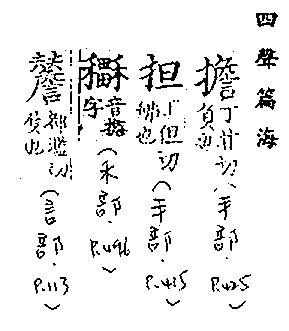 四聲篇海
擔丁甘切負也(手部.P.425)
担丁但切拂也(手部.P.425)
音 字(禾部.P.496)
都濫切負也(言部.P.113)